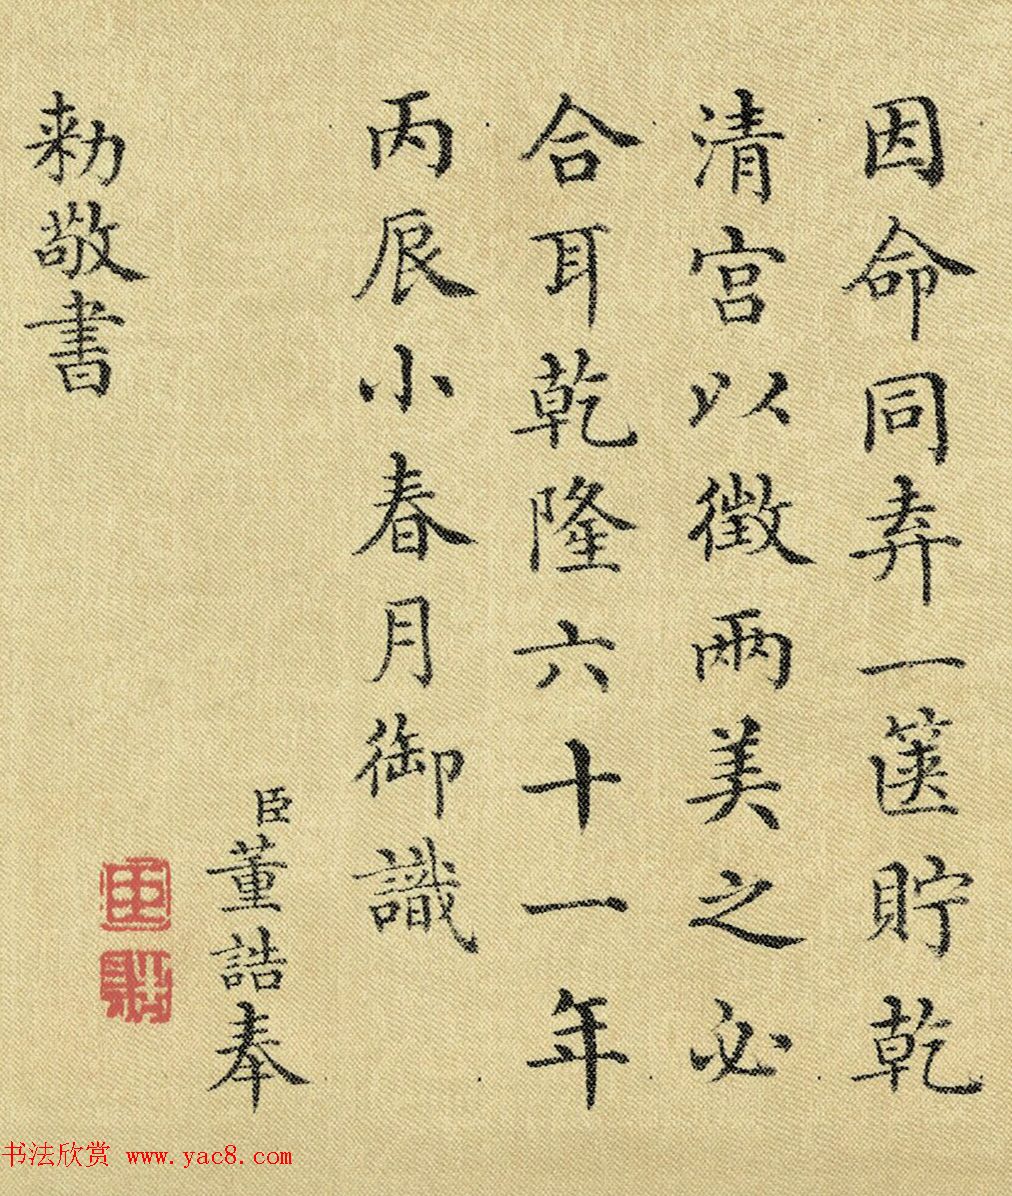 因命同弆一篋貯乾
清宮以徵兩美之必
合耳乾隆六十一年
丙辰小春月御識
臣董誥奉
勅敬書
书法欣赏 www.yac8.com